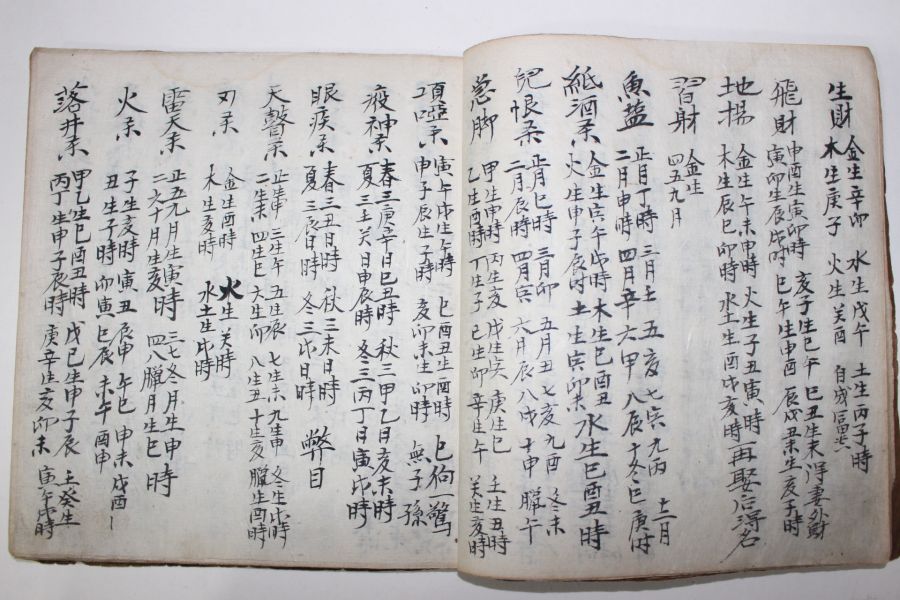 生財 金生辛卯 水生戊午 土生丙子時
木生庚子 火生癸酉 自成富
飛財 申酉生寅卯時 亥子生巳午 巳丑生未 得妻外財
寅卯生辰戌時 巳午生申酉 辰戌丑未生亥子時
地揚 金生午未申時 火生子丑寅時 再娶后得名
木生辰巳卯時 水土生酉戌亥時
習財 金生
四五九月
魚盐 正月丁時 三月壬 五亥 七寅 九丙 十二月
二月申時 四月辛 六甲 八辰 十冬巳 庚時
紙酒殺 金生寅午戌時 木生巳酉丑 水生巳酉丑時
火生申子辰時 土生寅卯未
正月巳時 三月卯 五月丑 七亥 九酉 冬未
二月辰時 四月寅 六月辰 八戌 十申 臘午
急脚 甲生申時 丙生亥 戊生 庚生巳 壬生丑時
乙生酉時 丁生子 己生卯 辛生午 癸生亥時
項啞殺 寅午戌生午時 巳酉丑生酉時 一驚
申子辰生子時 亥卯未生卯時 無子孫
疫神殺 春三庚辛日巳丑時 秋三甲乙日亥未時
夏三壬癸日申辰時 冬三丙丁日寅戌時
眼疾殺 春三丑日時 秋三未日時 弊目
夏三辰日時 冬三戌日時
天聾殺 正生申 三生午 五生辰 七生未 九生申 冬生戌時
二生未 四生巳 六生卯 八生丑 十生亥 臘生酉時
刃殺 金生酉時 火生癸時
木生亥時 水土生戌時
雷天殺 正五九月生寅時 三七冬月生申時
二六十月生亥 四八臘月生巳時
火殺 子生亥時 寅丑 辰申 午巳 申未 戌酉
丑生子時 卯寅 巳辰 未午 酉申
落井殺 甲乙生巳酉丑時 戊己生申子辰 壬癸生
丙丁生申子辰時 庚辛生亥卯未 寅午戌時